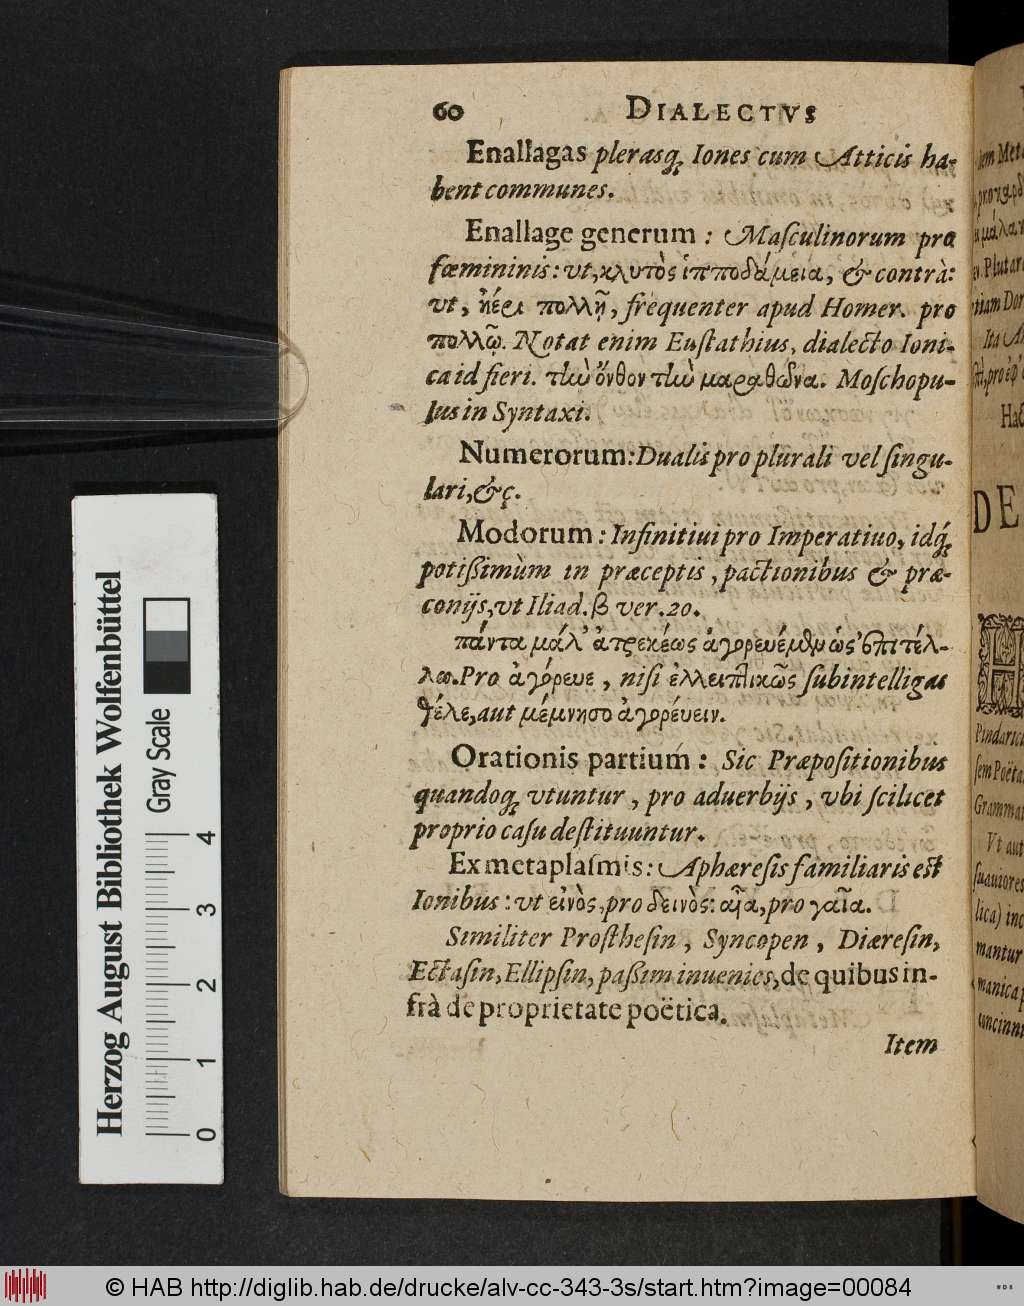 60 DIALECTVS
Enallagas plerasq́ꝫ Iones cum Atticis ha-
bent communes.
Enallage generum : Maſculinorum pro
fœmininis: vt, κλυτὸς ἱπποδάμεια, & contrà:
vt, ἠέρι πολλῇ, frequenter apud Homer. pro
πολλῷ. Notat enim Euſtathius, dialecto Ioni-
ca id fieri. τὼ ὄνθον τὼ μαραθῶνα. Moſchopu-
lus in Syntaxi.
Numerorum: Dualis pro plurali vel ſingu-
lari, &ç.
Modorum : Infinitiui pro Imperatiuo, idq́ꝫ
potißimùm in præceptis, pactionibus & præ-
conijs, vt Iliad. β ver. 20.
πάντα μάλ᾽ ἀτρεκέως ἀγορευέμεν ὡς ἐπιτέλ-
λω. Pro ἀγόρευε, niſi ἐλλειπτικῶς ſubintelligas
θέλε, aut μέμνησο ἀγορέυειν.
Orationis partium : Sic Præpoſitionibus
quandoq́ꝫ vtuntur, pro aduerbijs, vbi ſcilicet
proprio caſu deſtituuntur.
Ex metaplaſmis: Aphæreſis familiaris eſt
Ionibus: vt εἰνὸς, pro δεινὸς: αἶα, pro γαῖα.
Similiter Proſtheſin, Syncopen, Diæreſin,
Ectaſin, Ellipſin, paßim inuenies, de quibus in-
frà de proprietate poëtica.
Item
Herzog August Bibliothek Wolfenbüttel
Gray Scale
0 1 2 3 4
DE
Pindaric
ſem Poëta
Grammat
Vt aut
ſuauiores
lica) inc
mantur
manica p
concinn
© HAB http://diglib.hab.de/drucke/alv-cc-343-3s/start.htm?image=00084